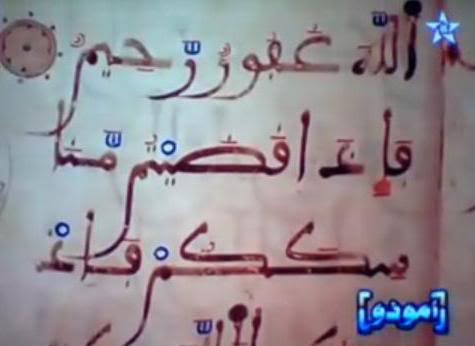 اللَّهَ غَفُورٌ رَّحِيمٌ
فَإِذَا قَضَيْتُم مَّنَٰ
سِكَكُمْ فَاذْ
[أمودو]